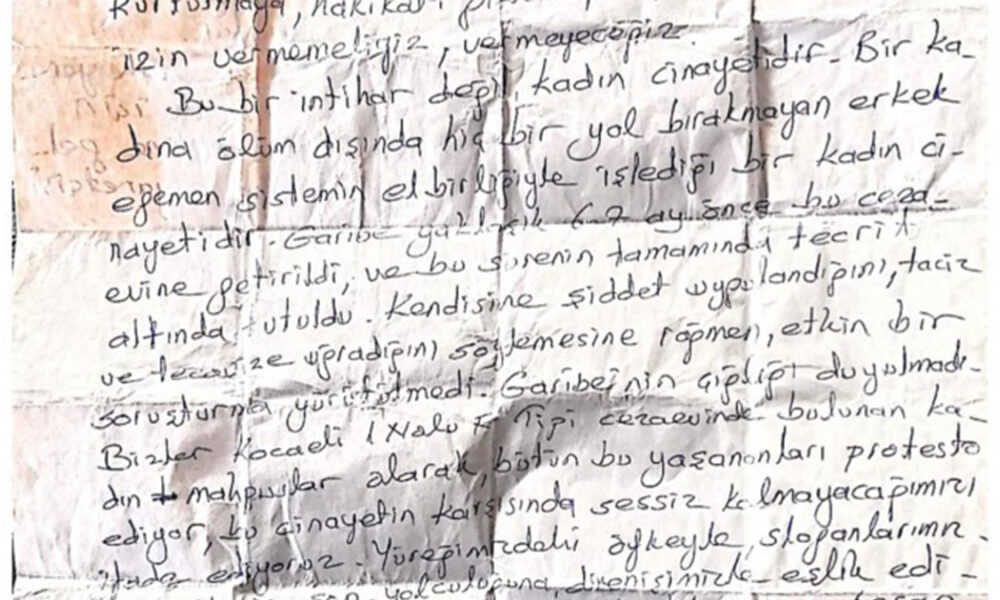 izin vermemeliyiz, vermeyeceğiz.
Bu bir intihar değil, kadın cinayetidir. Bir ka-
dına ölüm dışında hiç bir yol bırakmayan erkek
egemen sistemin elbirliğiyle işlediği bir kadın ci-
nayetidir. Garibe yaklaşık 6-7 ay önce bu ceza-
evine getirildi, ve bu sürenin tamamında tecrit
altında tutuldu. Kendisine şiddet uygulandığını, taciz
ve tecavüze uğradığını söylemesine rağmen, etkin bir
soruşturma yürütülmedi. Garibe'nin çığlığı duyulmadı.
Bizler Kocaeli 1 Nolu F Tipi cezaevinde bulunan ka-
dın mahpuslar olarak, bütün bu yaşananları protesto
ediyor, bu cinayetin karşısında sessiz kalmayacağımızı
ifade ediyoruz. Yüreğimizdeki öfkeyle, sloganlarımız
son yolculuğuna, direnişimizle eşlik edi-